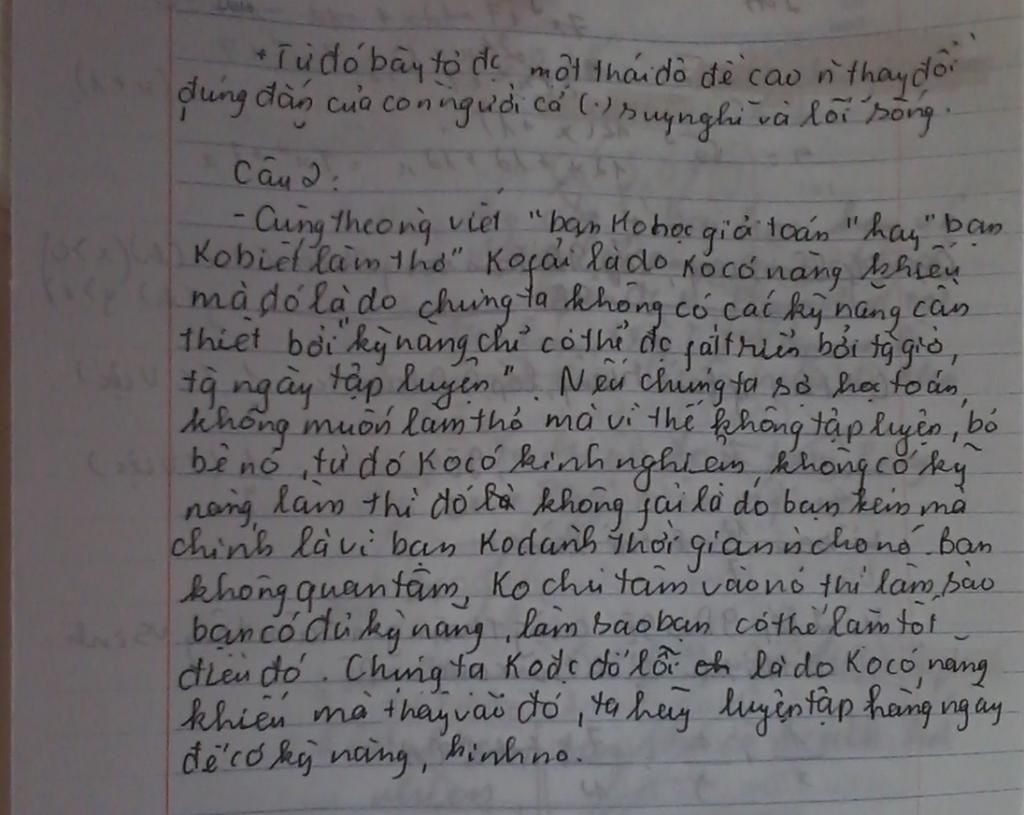 + Từ đó bày tỏ đc một thái độ đề cao n~ thay đổi
đúng đắn của con người cả (.) suy nghĩ và lối sống.
Câu 2:
- Cũng theo ng viết "bạn Ko học giỏi toán" hay "bạn
Ko biết làm thơ" Ko fải là do Ko có năng khiếu
mà đó là do chúng ta không có các kỹ năng cần
thiết bởi "kỹ năng chỉ có thể đc fát triển bởi từng giờ,
từng ngày tập luyện". Nếu chúng ta sợ học toán,
không muốn làm thơ mà vì thế không tập luyện, bỏ
bê nó, từ đó Ko có kinh nghiệm, không có kỹ
năng làm thì đó là không fải là do bạn kém mà
chính là vì bạn Ko dành thời gian cho nó. Bạn
không quan tâm, Ko chú tâm vào nó thì làm sao
bạn có đủ kỹ năng, làm sao bạn có thể làm tốt
điều đó. Chúng ta Ko đc đổ lỗi là do Ko có năng
khiếu mà thay vào đó, ta hãy luyện tập hàng ngày
để có kỹ năng, kinh no.